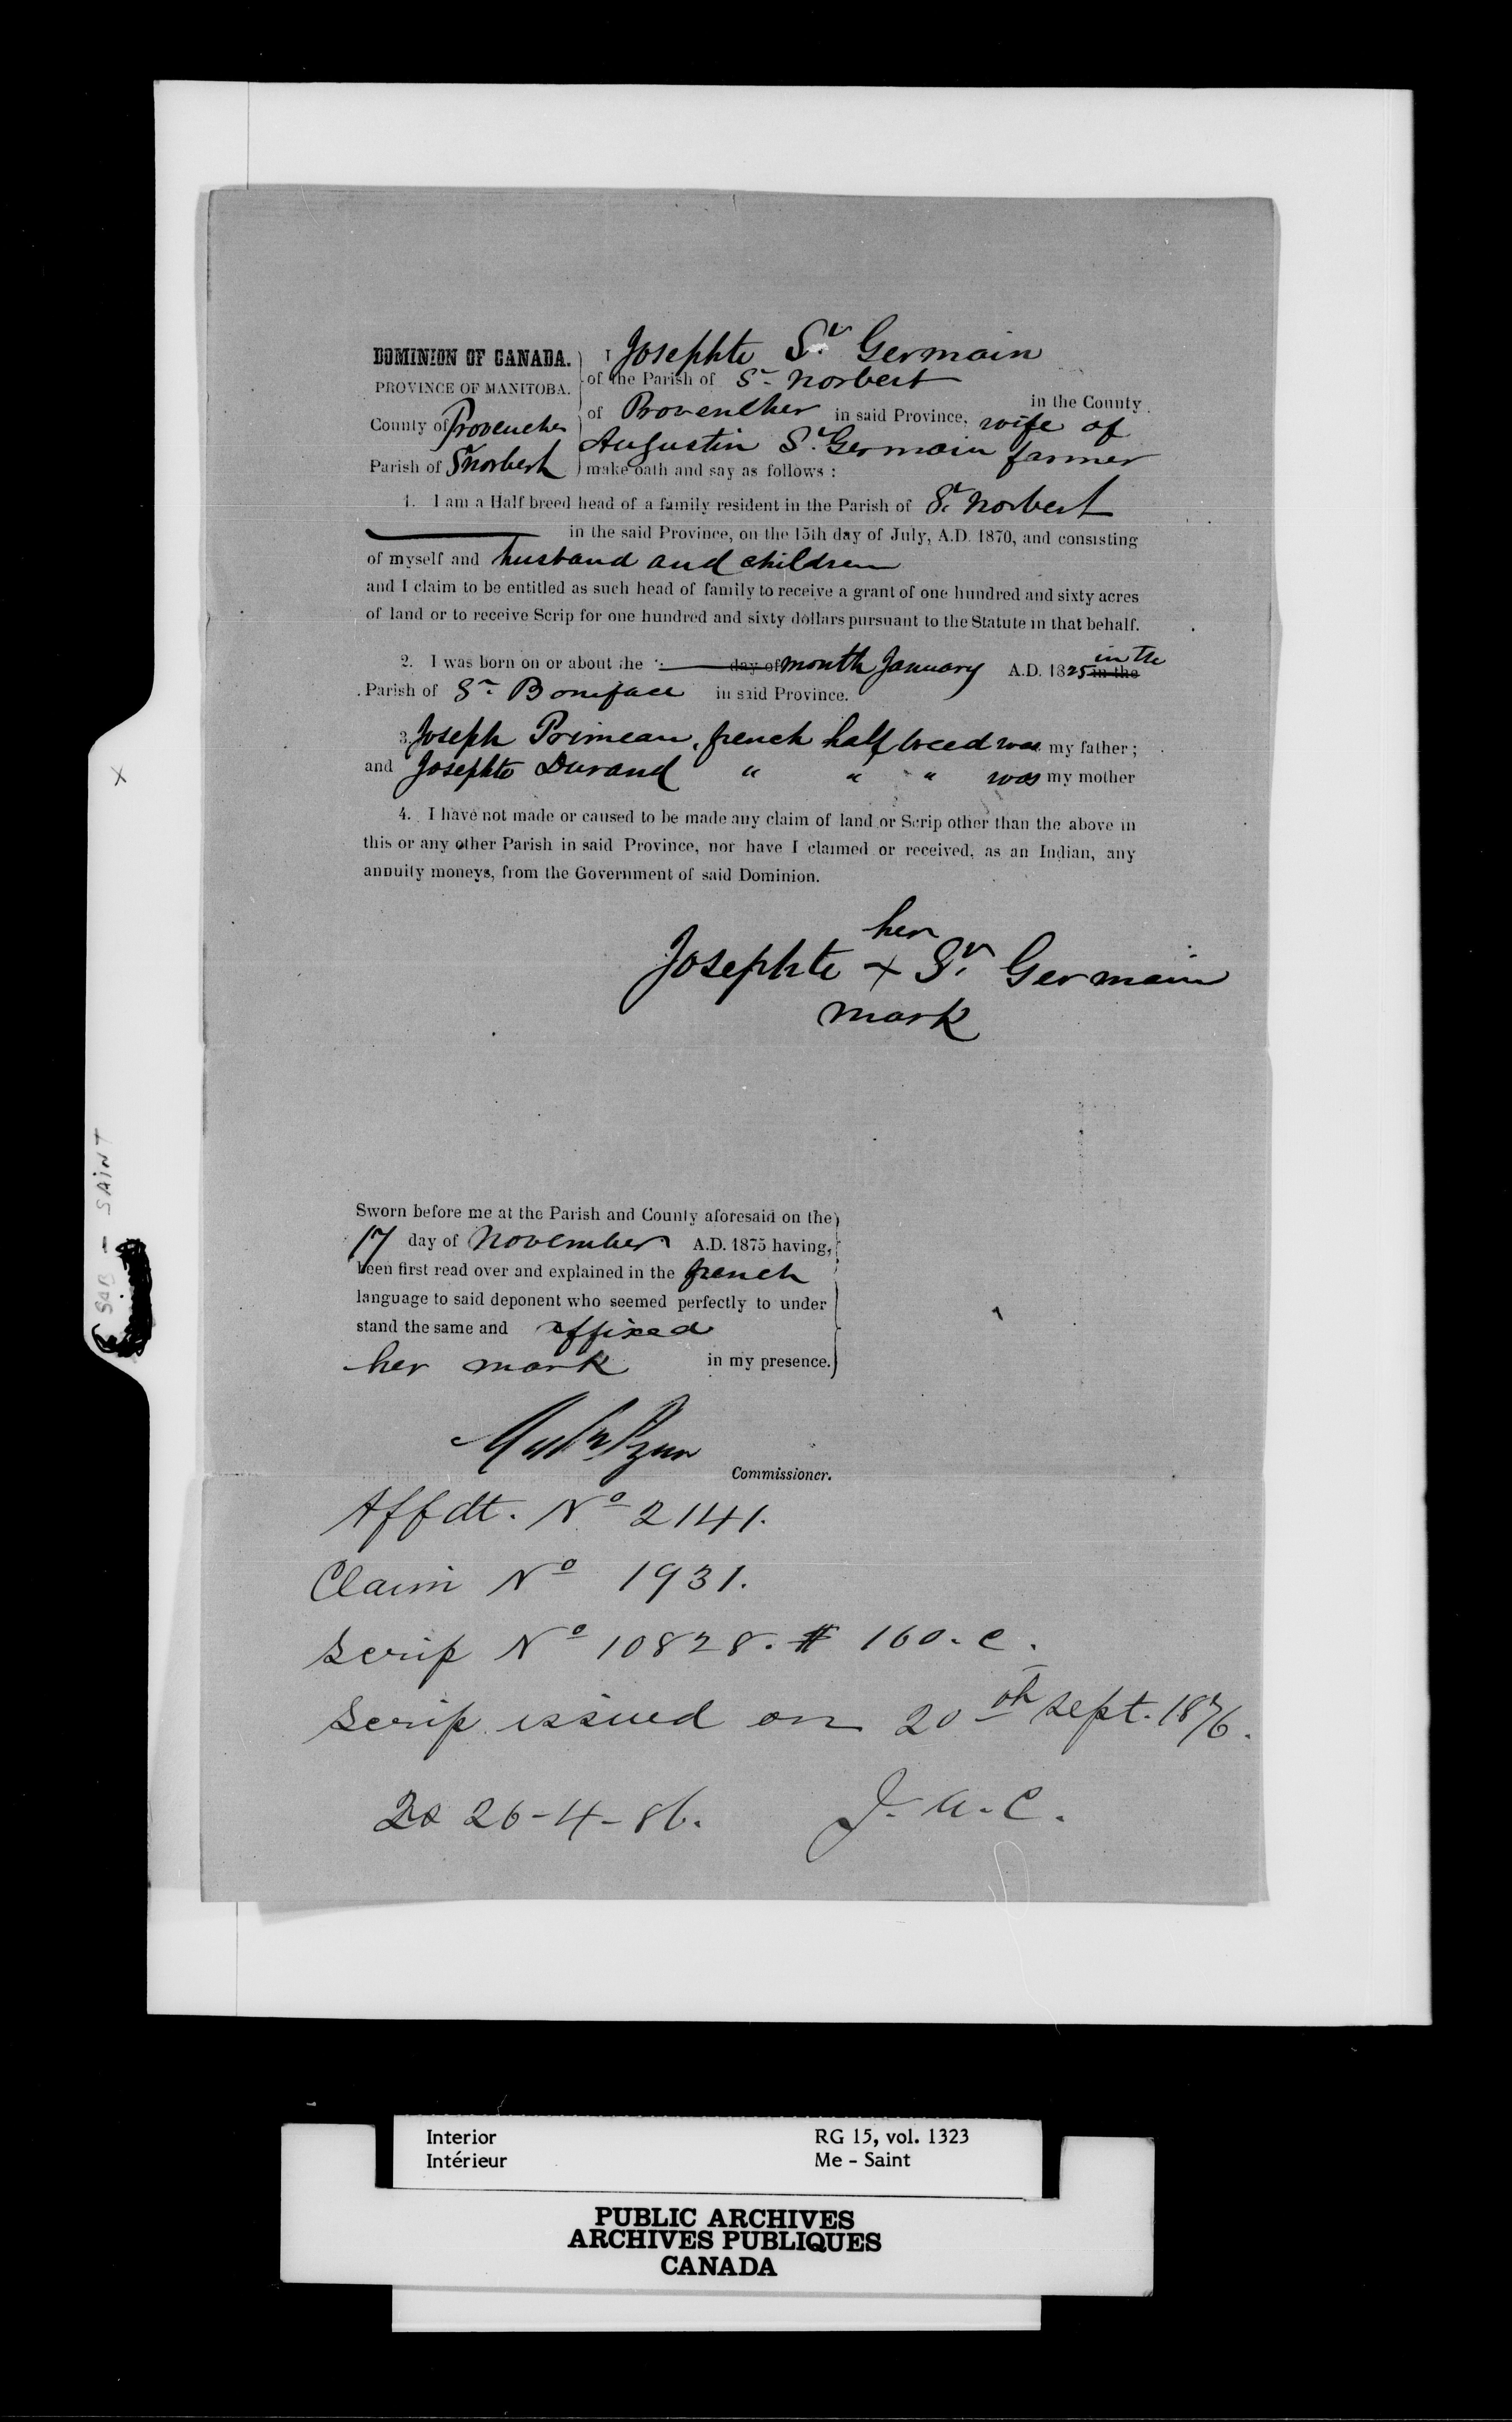 DOMINION OF CANADA.
PROVINCE OF MANITOBA.
County of Provencher
Parish of St Norbert
I Josephte St. Germain
of the Parish of St Norbert
in the County
of Provencher in said Province, wife of
Augustin St. Germain farmer
make oath and say as follows :
1. I am a Half breed head of a family resident in the Parish of St. Norbert
in the said Province, on the 15th day of July, A.D. 1870, and consisting
of myself and husband and children
and I claim to be entitled as such head of family to receive a grant of one hundred and sixty acres
of land or to receive Scrip for one hundred and sixty dollars pursuant to the Statute in that behalf.
2. I was born on or about the day of month January A.D. 1825 in the in the
Parish of St Boniface in said Province.
3. Joseph Primeau, french half breed was my father ;
and Josephte Durand " " " was my mother
4. I have not made or caused to be made any claim of land or Scrip other than the above in
this or any other Parish in said Province, nor have I claimed or received, as an Indian, any
annuity moneys, from the Government of said Dominion.
her
Josephte + St. Germain
mark
Sworn before me at the Parish and County aforesaid on the
17 day of November A.D. 1875 having,
been first read over and explained in the french
language to said deponent who seemed perfectly to under
stand the same and affixed
her mark in my presence.
Commissioner.
Affdt. No 2141.
Claim No 1931.
Scrip No 10828. $ 160. c.
Scrip issued on 20th Sept. 1876.
26-4-86. J. A. C.
SAB - SAINT
x
Interior
Intérieur
RG 15, vol. 1323
Me - Saint
PUBLIC ARCHIVES
ARCHIVES PUBLIQUES
CANADA